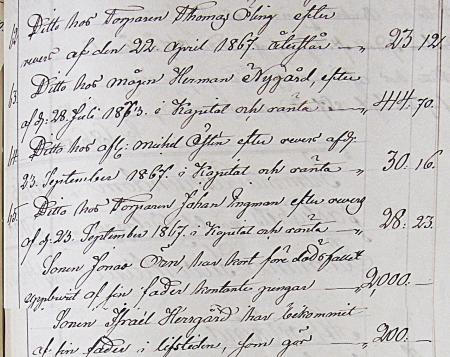 62. Ditto hos Torparen Thomas Öling efter
revers af den 22. April 1867. återstår — „ 23. 12.
63. Ditto hos mågen Herman Nygård, efter
d:o af d: 28. Juli 1863. i Kapital och ränta — „ 414. 70.
64. Ditto hos afl: Mihel Åhlin efter revers af d:
23. September 1867. i Kapital och ränta — „ 30. 16.
65. Ditto hos Torparen Johan Ingman efter revers
af d: 23. September 1867. i Kapital och ränta — „ 28. 23.
Sonen Jonas Örn, har kort före dödsfallet
uppburit af sin fader kontante pengar — „ 2,000. —
Sonen Israel Herrgård har bekommit
af sin fader i lifstiden, som gör — „ 200. —